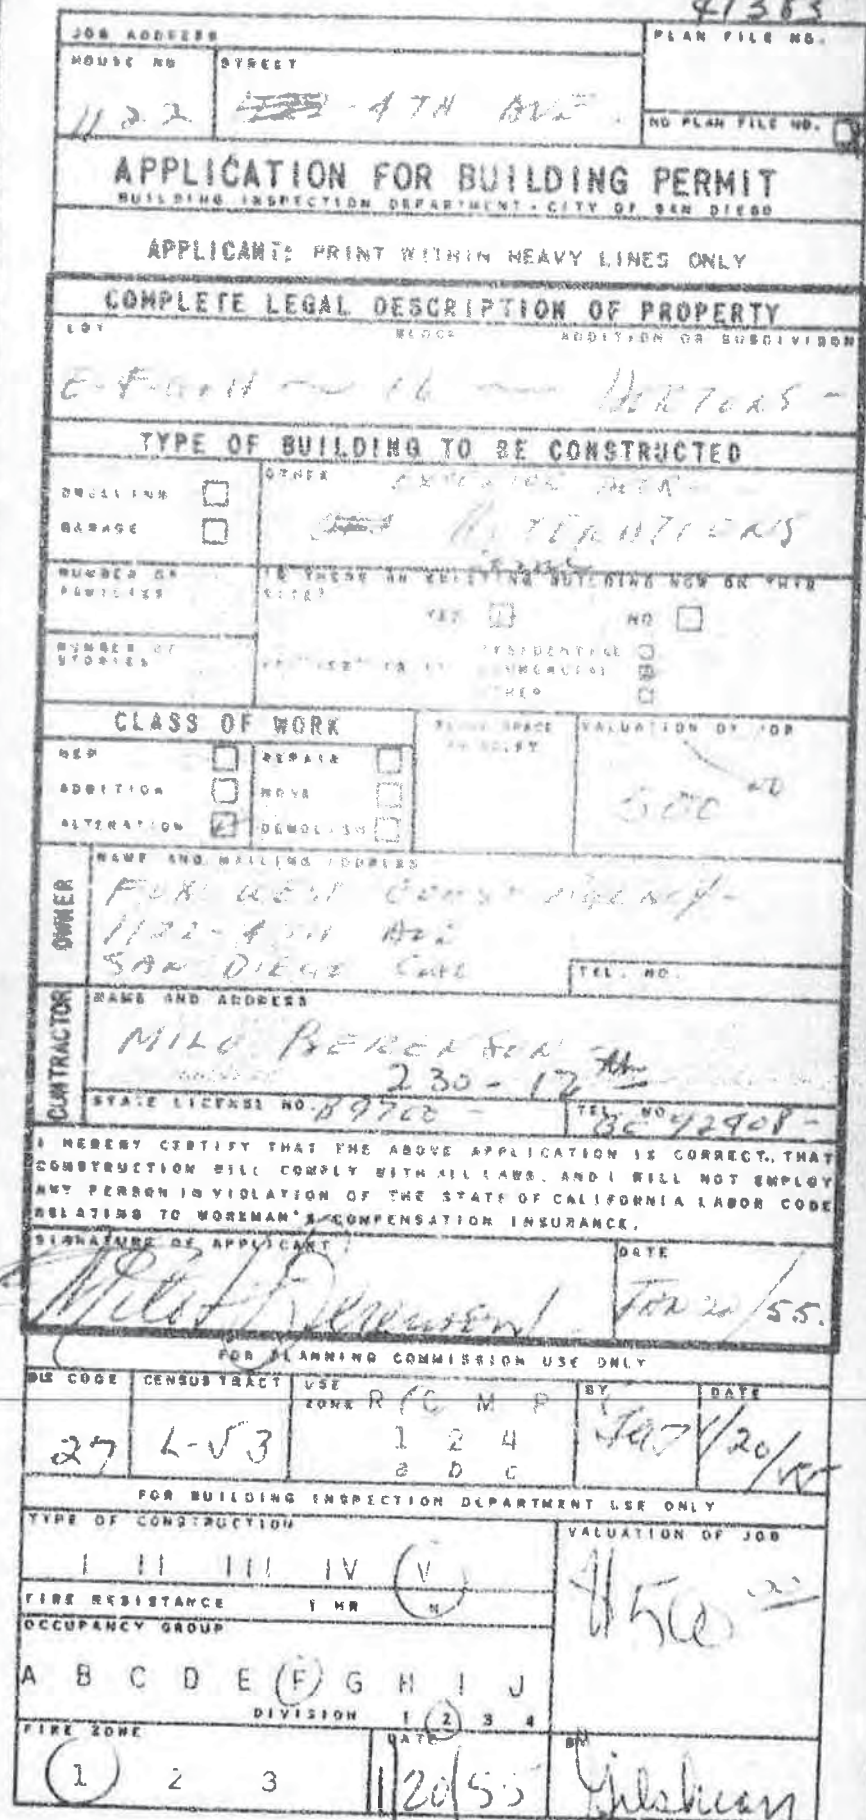 41363
JOB ADDRESS
PLAN FILE NO.
HOUSE NO
STREET
1122
4TH AVE.
NO PLAN FILE NO.
APPLICATION FOR BUILDING PERMIT
BUILDING INSPECTION DEPARTMENT - CITY OF SAN DIEGO
APPLICANT: PRINT WITHIN HEAVY LINES ONLY
COMPLETE LEGAL DESCRIPTION OF PROPERTY
LOT BLOCK ADDITION OR SUBDIVISON
E-F-G-H 16 HORTONS -
TYPE OF BUILDING TO BE CONSTRUCTED
DWELLING
OTHER
GARAGE
ALTERATIONS
NUMBER OF FAMILIES
IS THERE AN EXISTING BUILDING NOW ON THIS SITE?
YES NO
NUMBER OF STORIES
RESIDENTIAL
COMMERCIAL
OTHER
CLASS OF WORK
FLOOR SPACE IN SQ. FT
VALUATION OF JOB
NEW REPAIR
ADDITION MOVE
500 00
ALTERATION DEMOLISH
OWNER
NAME AND MAILING ADDRESS
WEST AGENCY -
1122-4TH AVE
SAN DIEGO CALF
TEL. NO.
CONTRACTOR
NAME AND ADDRESS
MILO BERENSEN
230-12th
STATE LICENSE NO. 89700 -
TEL. NO.
I HEREBY CERTIFY THAT THE ABOVE APPLICATION IS CORRECT, THAT
CONSTRUCTION WILL COMPLY WITH ALL LAWS, AND I WILL NOT EMPLOY
ANY PERSON IN VIOLATION OF THE STATE OF CALIFORNIA LABOR CODE
RELATING TO WORKMAN'S COMPENSATION INSURANCE.
SIGNATURE OF APPLICANT
DATE
JAN 20/55.
FOR PLANNING COMMISSION USE ONLY
CENSUS TRACT
USE ZONE R C M P
BY
DATE
27
L-53
1 2 4
1/20/55
a b c
FOR BUILDING INSPECTION DEPARTMENT USE ONLY
TYPE OF CONSTRUCTION
VALUATION OF JOB
I II III IV V
FIRE RESISTANCE 1 HR N
$500 00
OCCUPANCY GROUP
A B C D E F G H I J
DIVISION 1 2 3 4
FIRE ZONE
DATE
BY
1 2 3
1/20/55